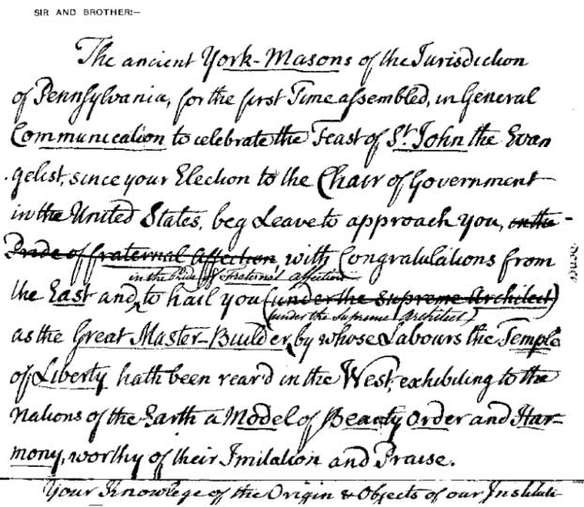 SIR AND BROTHER:—
The ancient York-Masons of the Jurisdiction
of Pennsylvania, for the first Time assembled, in General
Communication to celebrate the Feast of St. John the Evan
gelist, since your Election to the Chair of Government
in the United States, beg Leave to approach you, in the
Pride of fraternal affection with Congratulations from
in the Pride of fraternal affection
the East and, to hail you (under the Supreme Architect)
(under the Supreme Architect)
as the Great Master-Builder, by whose Labours the Temple
of Liberty hath been rear'd in the West, exhibiting to the
Nations of the Earth a Model of Beauty Order and Har-
mony, worthy of their Imitation and Praise.
Your Knowlege of the Origin & Objects of our Instituti